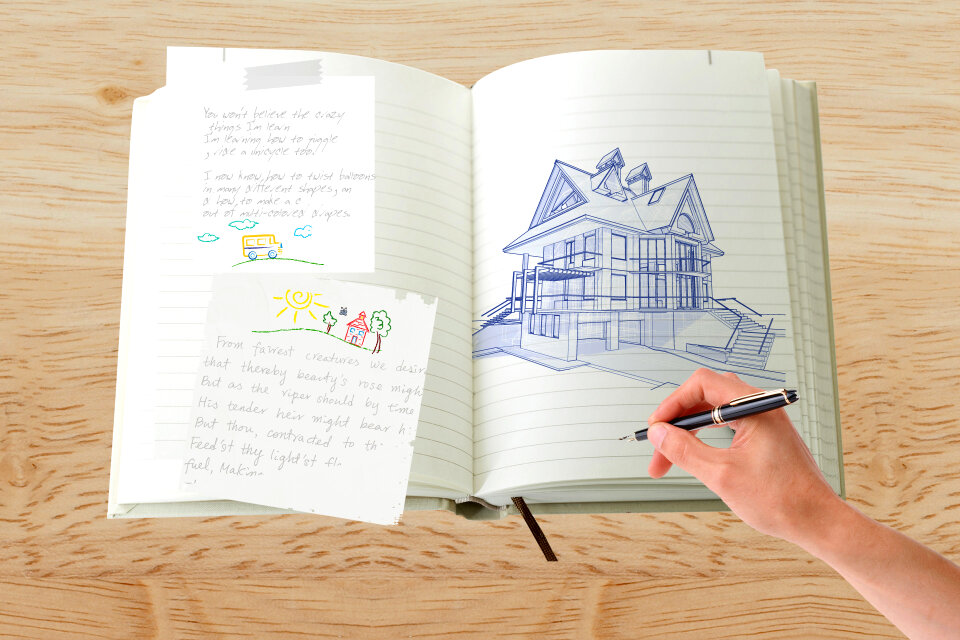 You won't believe the crazy
things I'm learn
I'm learning how to juggle
, ride a unicycle too.
I now know, how to twist balloons
in many different shapes, an
d how, to make a c
out of multi-colored drapes.
From fairest creatures we desir
that thereby beauty's rose migh
But as the riper should by time
His tender heir might bear hi
But thou, contracted to th
Feed'st thy light'st fl
fuel, Makin